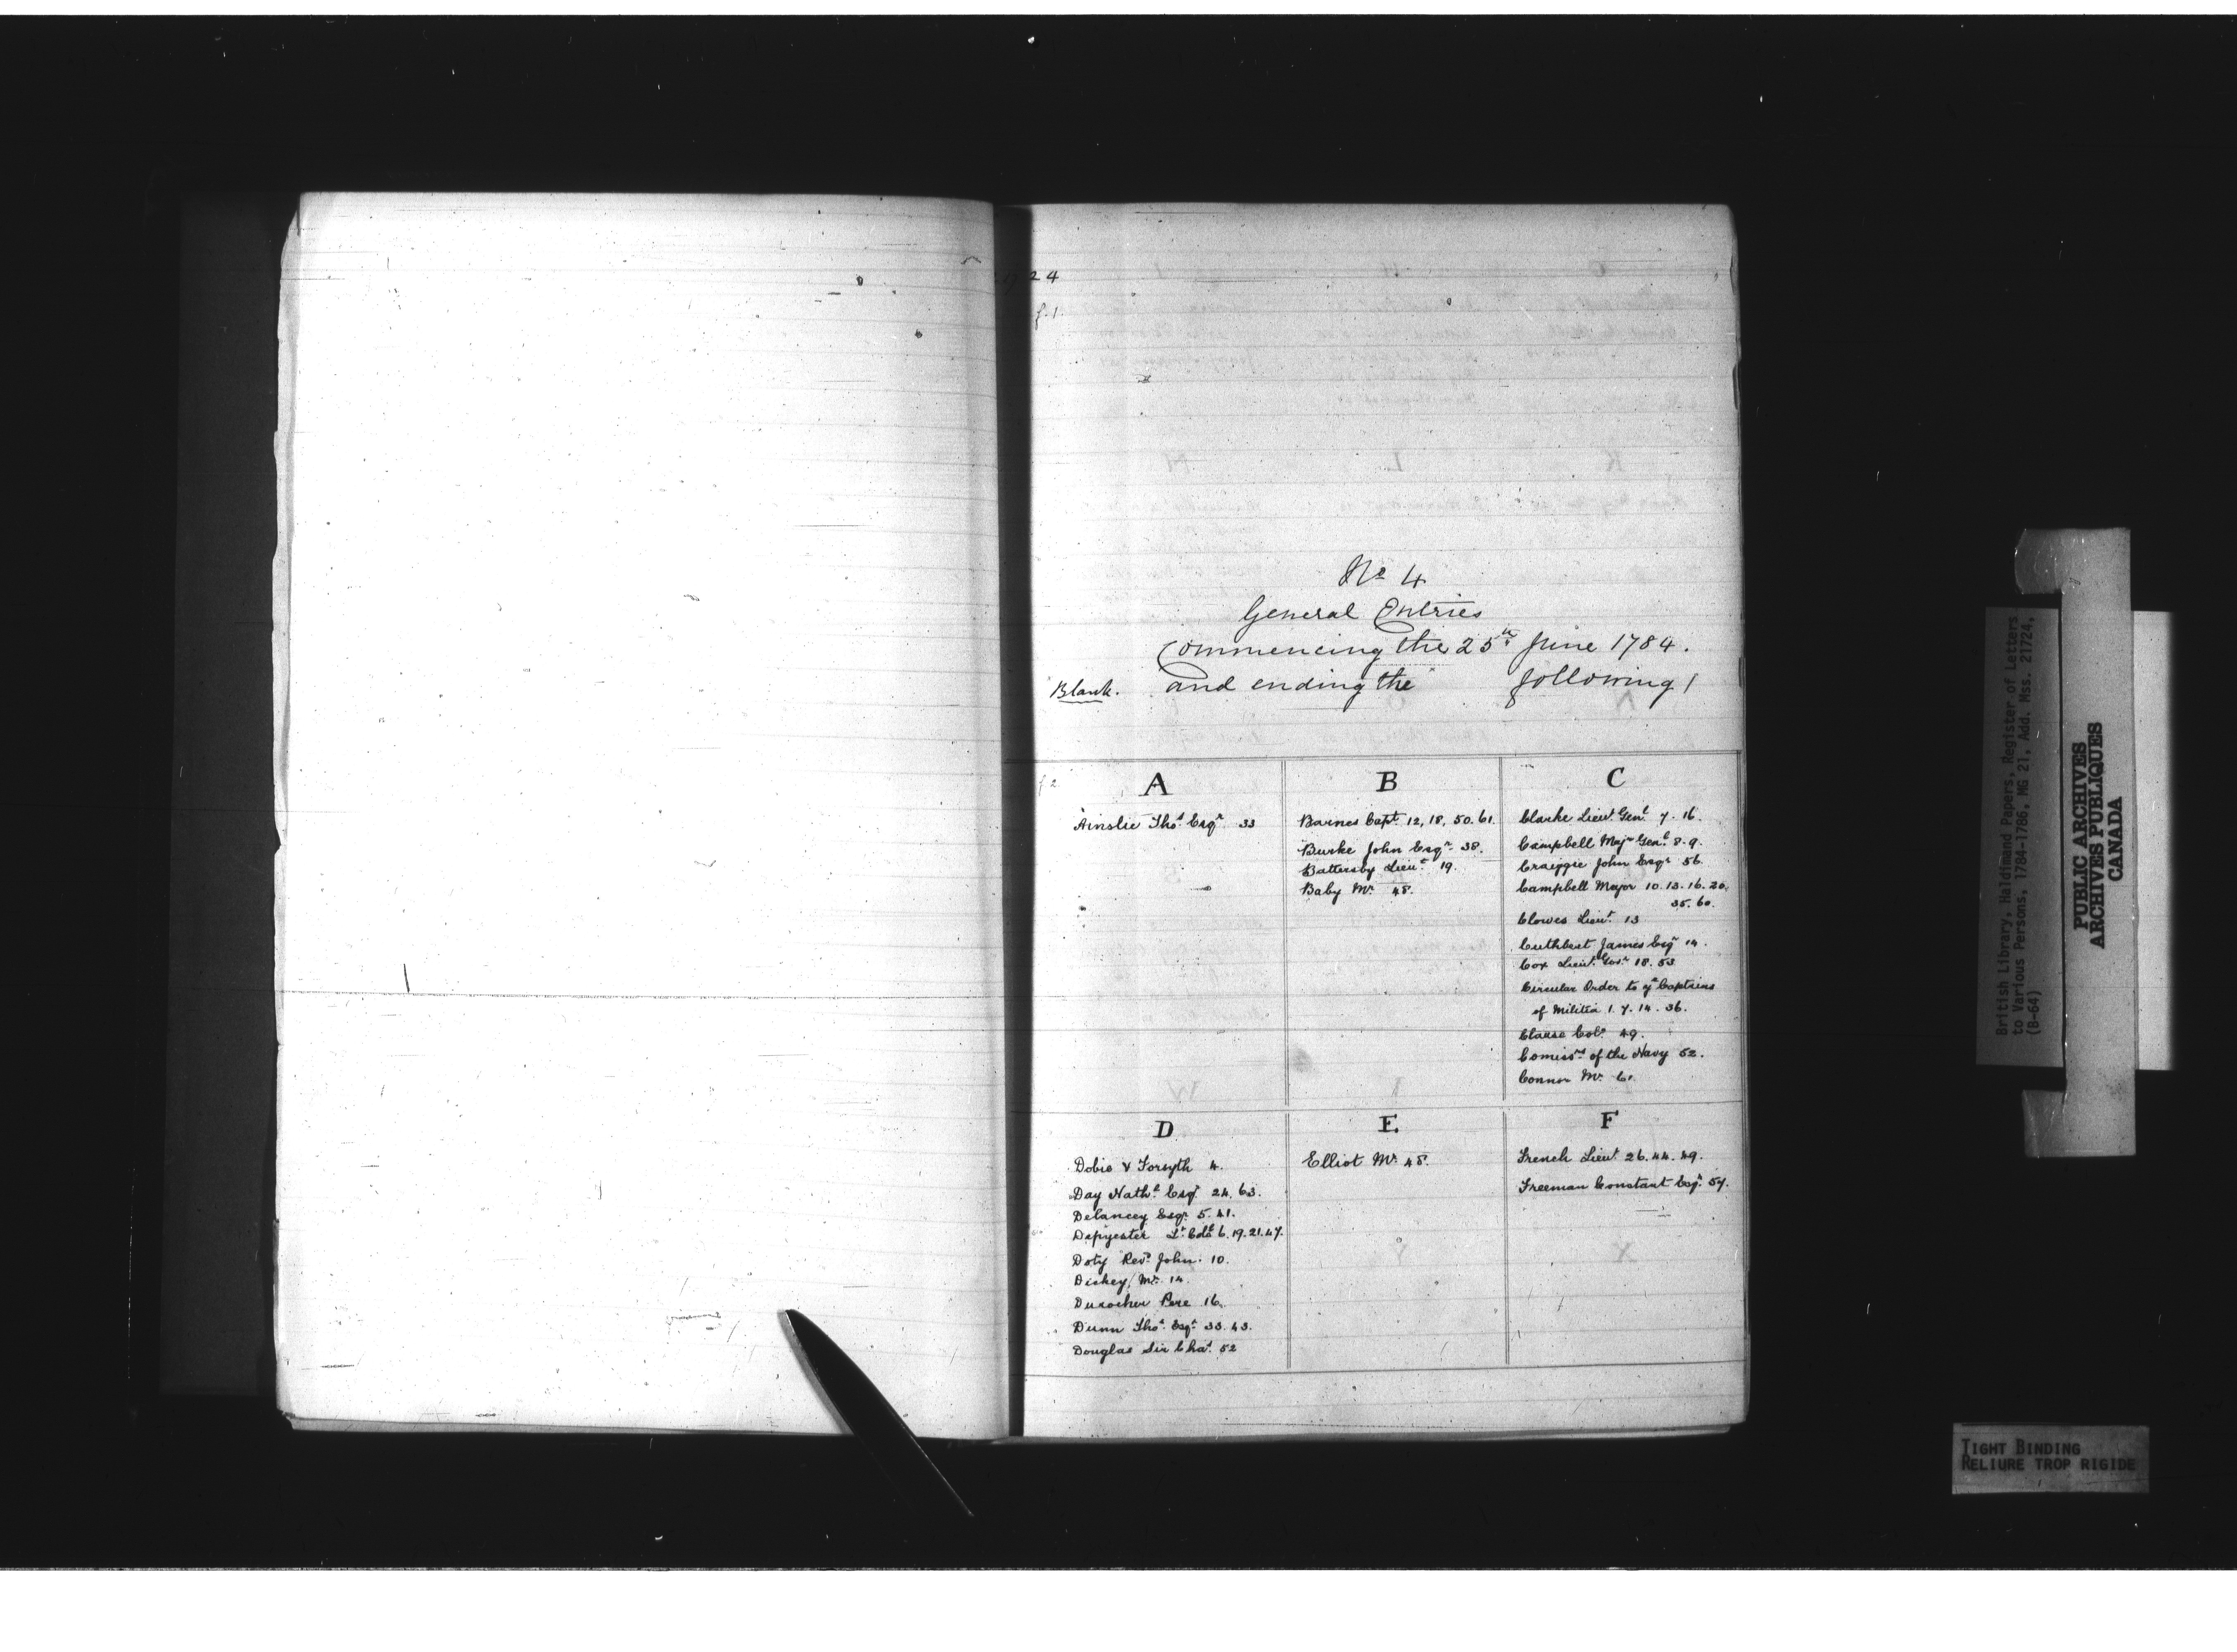 24
f.1.
No 4
General Entries
Commencing the 25th June 1784.
Blank. and ending the following /
f 2
A
Ainslie Thos Esqr 33
B
Barnes Capt. 12, 18, 50. 61.
Burke John Esqr 38.
Battersby Lieut 19.
Baby Mr 48.
C
Clarke Lieut Genl 7. 16.
Campbell Majr Genl 8. 9.
Craiggie John Esqr 56.
Campbell Major 10. 13. 16. 20.
35. 60.
Clowes Lieut 13
Cuthbert James Esqr 14.
Cox Lieut Govr 18. 53
Circular Order to ye Captains
of Militia 1. 7. 14. 36.
Clause Colo 49.
Comissrs of the Navy 52.
Connor Mr 61.
D
Dobie & Forsyth 4.
Day Nathl Esqr 24. 63.
Delancey Esqr 5. 41.
Depyester Lt Coll 6. 19. 21. 47.
Doty Revd John. 10.
Dickey, Mr. 14.
Durocher Pere 16.
Dunn Thos Esqr 33. 43.
Douglas Sir Chas 52
E
Elliot Mr 48.
F
French Lieut 26. 44. 49.
Freeman Constant Esqr 57.
British Library, Haldimand Papers, Register of Letters
to Various Persons, 1784-1786, MG 21, Add. Mss. 21724,
(B-64)
PUBLIC ARCHIVES
ARCHIVES PUBLIQUES
CANADA
TIGHT BINDING
RELIURE TROP RIGIDE